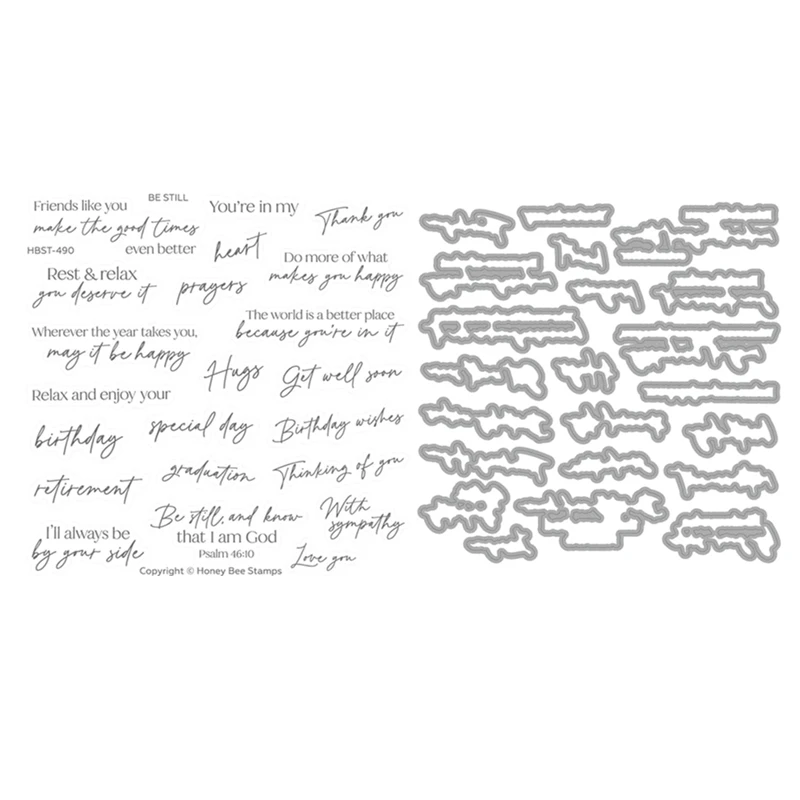 BE STILL
Friends like you
make the good times
You're in my
Thank you
HBST-490
even better
heart
Do more of what
makes you happy
Rest & relax
you deserve it
prayers
The world is a better place
because you're in it
Wherever the year takes you,
may it be happy
Hugs
Get well soon
Relax and enjoy your
birthday
special day
Birthday wishes
retirement
graduation
Thinking of you
Be still, and know
that I am God
Psalm 46:10
With
sympathy
I'll always be
by your side
Love you
Copyright © Honey Bee Stamps